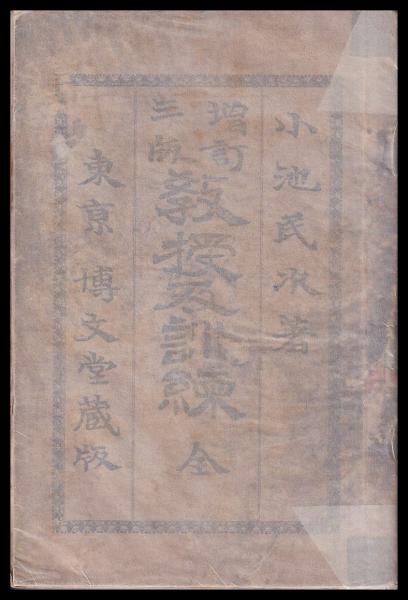 小池民次著
増訂
三版
教授及訓練
全
東京 博文堂蔵版